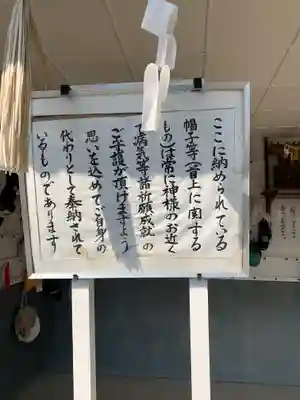 ここに納められている
帽子等(首上に関する
もの)は常に神様のお近く
で病気等諸祈願成就の
ご守護が頂けますよう
思いを込めてご自身の
代わりとして奉納されて
いるものであります